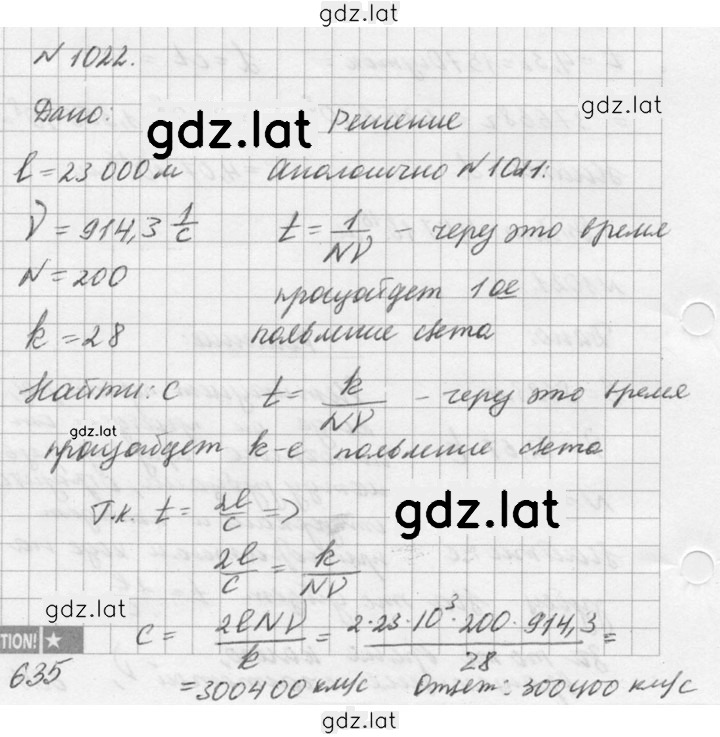 gdz.lat
N 1022.
Дано: gdz.lat Решение gdz.lat
l = 23 000 м Аналогично N 1011:
ν = 914,3 1/c t = 1/Nν – через это время
N = 200 произойдет 1ое
k = 28 появление света
Найти: c t = k/Nν – через это время
gdz.lat
произойдет k-е появление света
Т.к. t = 2l/c => gdz.lat
2l/c = k/Nν
gdz.lat
TION! ★ c = 2lNν/k = 2·23·10³·200·914,3/28 =
635 = 300400 км/с Ответ: 300400 км/с
gdz.lat